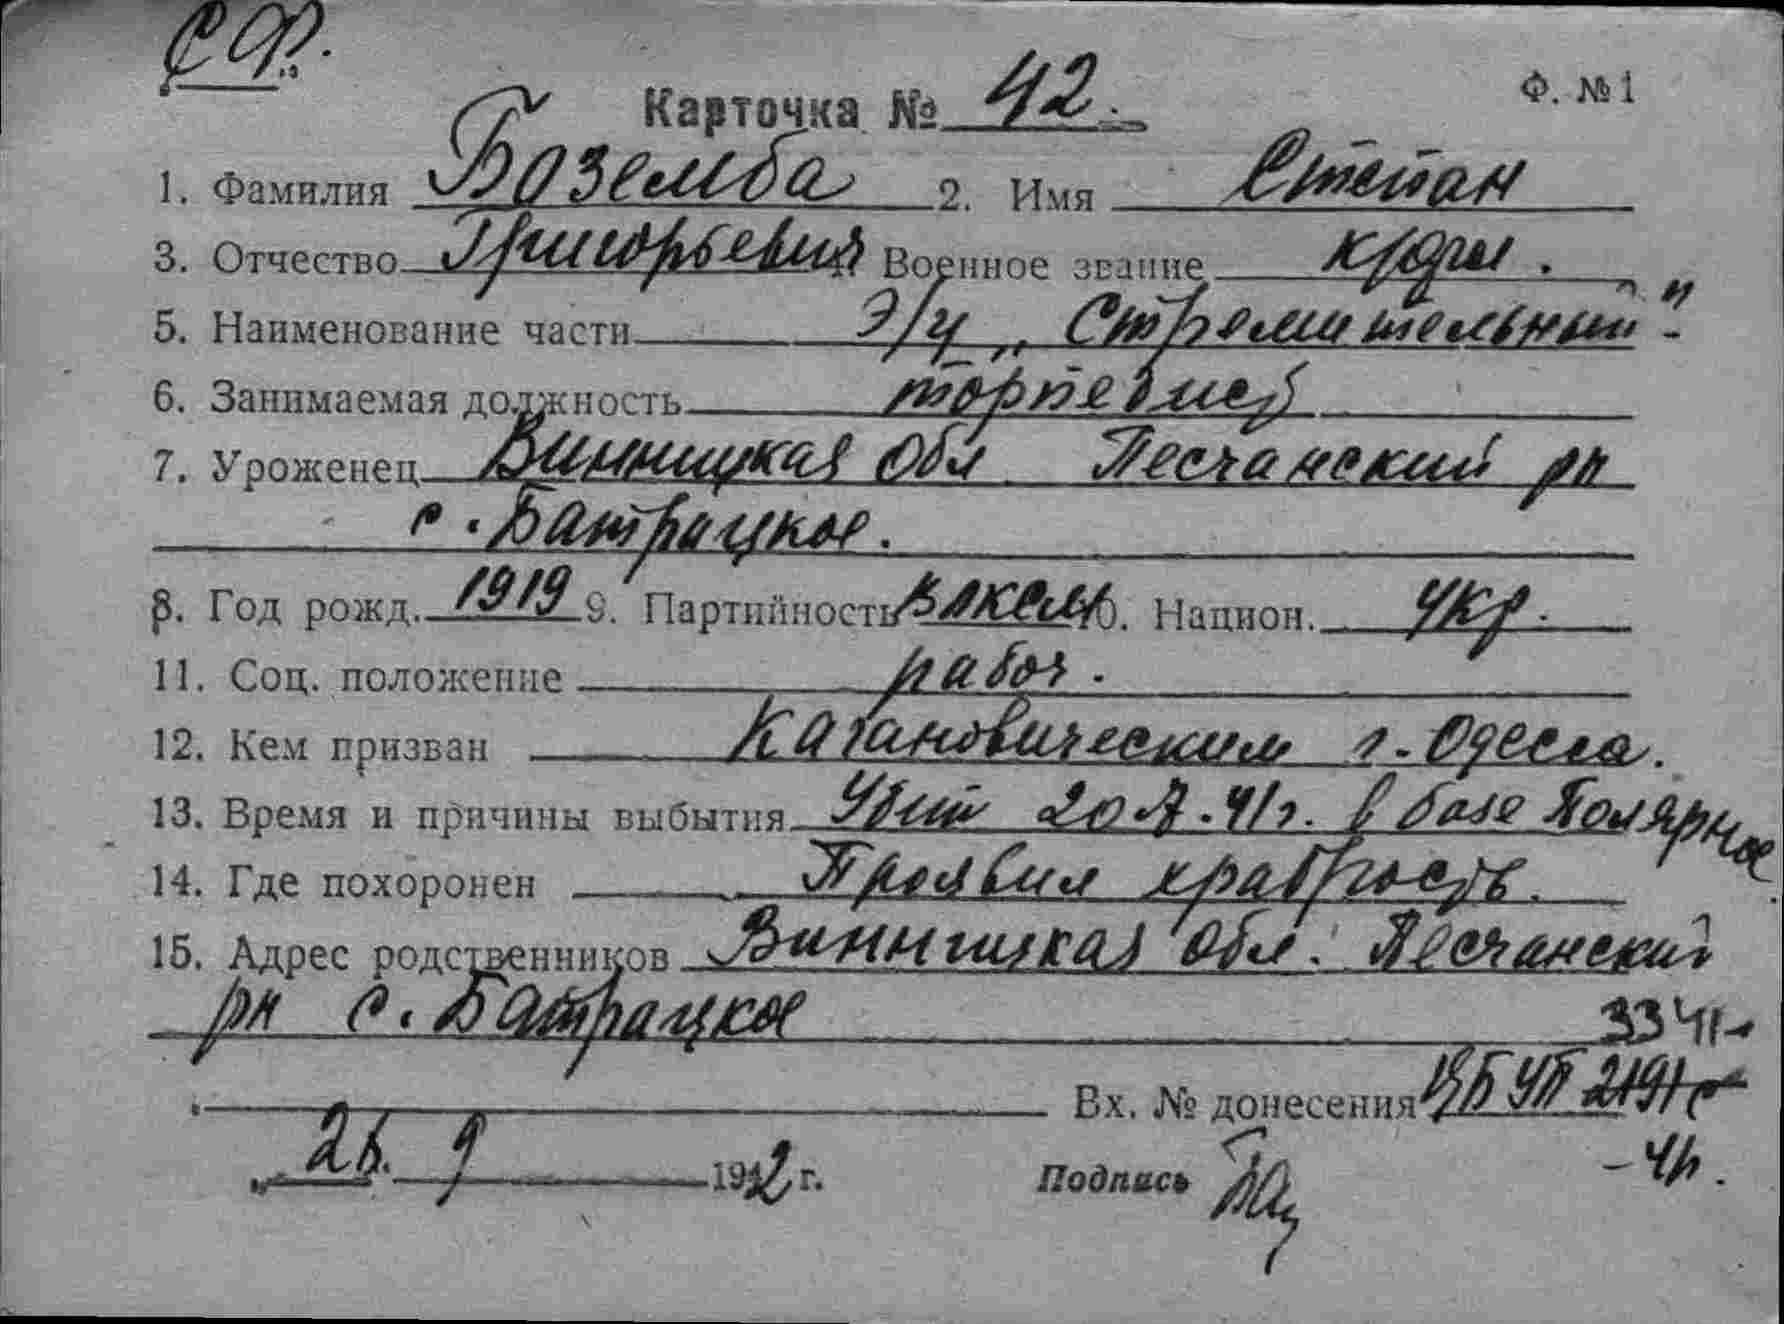 СФ.
Ф. № 1
Карточка № 42.
1. Фамилия Боземба 2. Имя Степан
3. Отчество Григорьевич Военное звание кр/фл.
5. Наименование части Э/м „Стремительный"
6. Занимаемая должность торпедист
7. Уроженец Винницкая обл Песчанский рн
с. Батрацкое.
8. Год рожд. 1919 9. Партийность ВЛКСМ 10. Национ. укр.
11. Соц. положение рабоч.
12. Кем призван Кагановическим г. Одесса.
13. Время и причины выбытия Убит 20.7.41г. в базе Полярное
14. Где похоронен Проявил храбрость.
15. Адрес родственников Винницкая обл. Песчанский
рн с. Батрацкое
3341
Вх. № донесения УП 2191с
-41.
„26. 9 1942 г. Подпись